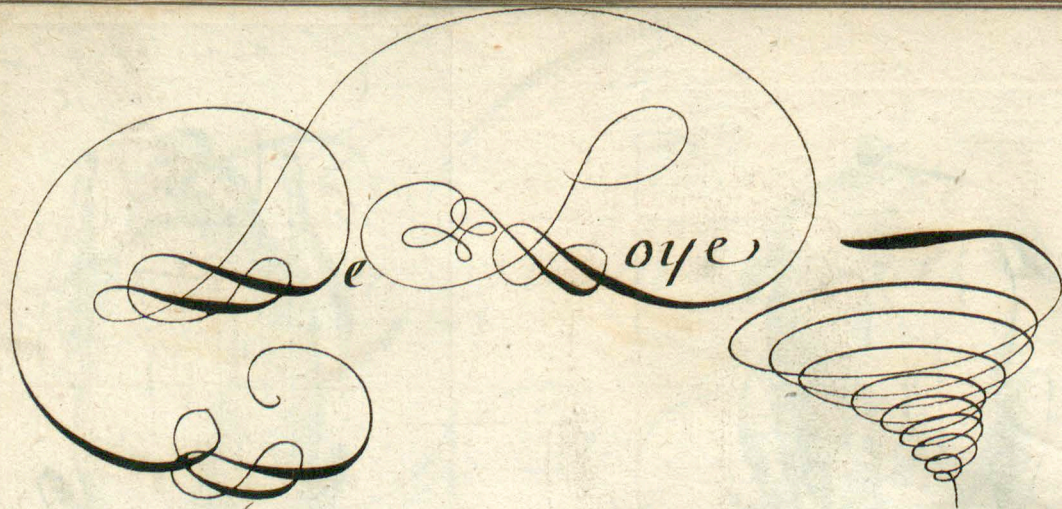 De Loye